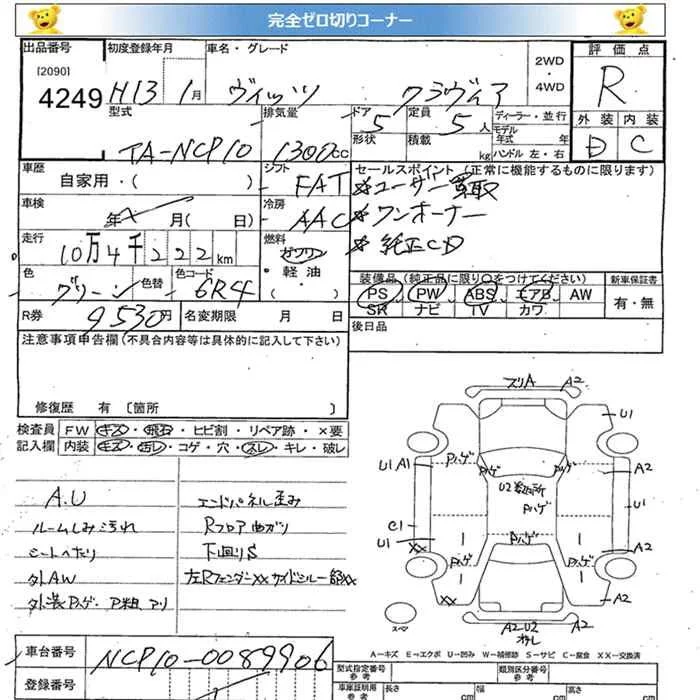 完全ゼロ切りコーナー
出品番号 初度登録年月 車名・グレード 2WD ・ 4WD 評価点
[2090]
4249 H13 1月 ヴィッツ クラヴィア R
型式 排気量 ドア 5 定員 5人 ディーラー・並行 外装 内装
形状 積載 kg モデル年式 年 D C
TA-NCP10 1300cc ハンドル 左・右
車歴 シフト FAT セールスポイント (正常に機能するものに限ります)
自家用・( ) ※ユーザー買取
車検 年 月( 日) 冷房 AAC ※ワンオーナー
走行 10万4千222km 燃料 ガソリン ※純正CD
・
軽油
・
( )
色 グリーン 色替 色コード 6R4
装備品 (純正品に限り○をつけてください) 新車保証書
PS PW ABS エアB AW 有・無
SR ナビ TV カワ
R券 9530円 名変期限 月 日
後日品
注意事項申告欄(不具合内容等は具体的に記入して下さい)
修復歴 有 〔箇所 〕
検査員 FW キズ・飛石・ヒビ割・リペア跡・×要
記入欄 内装 キズ・汚レ・コゲ・穴・スレ・キレ・破レ
A.U エンドパネル歪み
ルームしみ汚れ Rフロア曲がり
シートへたり 下回りS
外AW 左Rフェンダー××サイドシル一部××
外装Pハゲ・ア粗アリ
スリA A2
U1
U1 A1 Pハゲ Pハゲ A2
U2 Pハゲ U1
C1
U1 Pハゲ A2
×× Pハゲ Pハゲ
×× A2
スペア A2U2
A-キズ E-エクボ U-凹み W-補修跡 S-サビ C-腐食 XX-交換済
車台番号 NCP10-0089906
登録番号
型式指定番号 参考 類別区分番号 参考
車庫証明用 参考 長さ cm 幅 cm 高さ cm